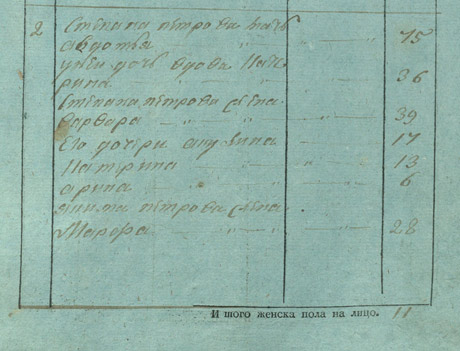 2 Степана петрова мать
авдотья " 75
унеи дочь вдова Кате
рина " 36
Степана петрова жена
варвара " " 39
Его дочери акулина 17
Катрина " " 13
арина " 6
якима петрова жена
Марфа " " 28
И того женска пола на лицо. 11